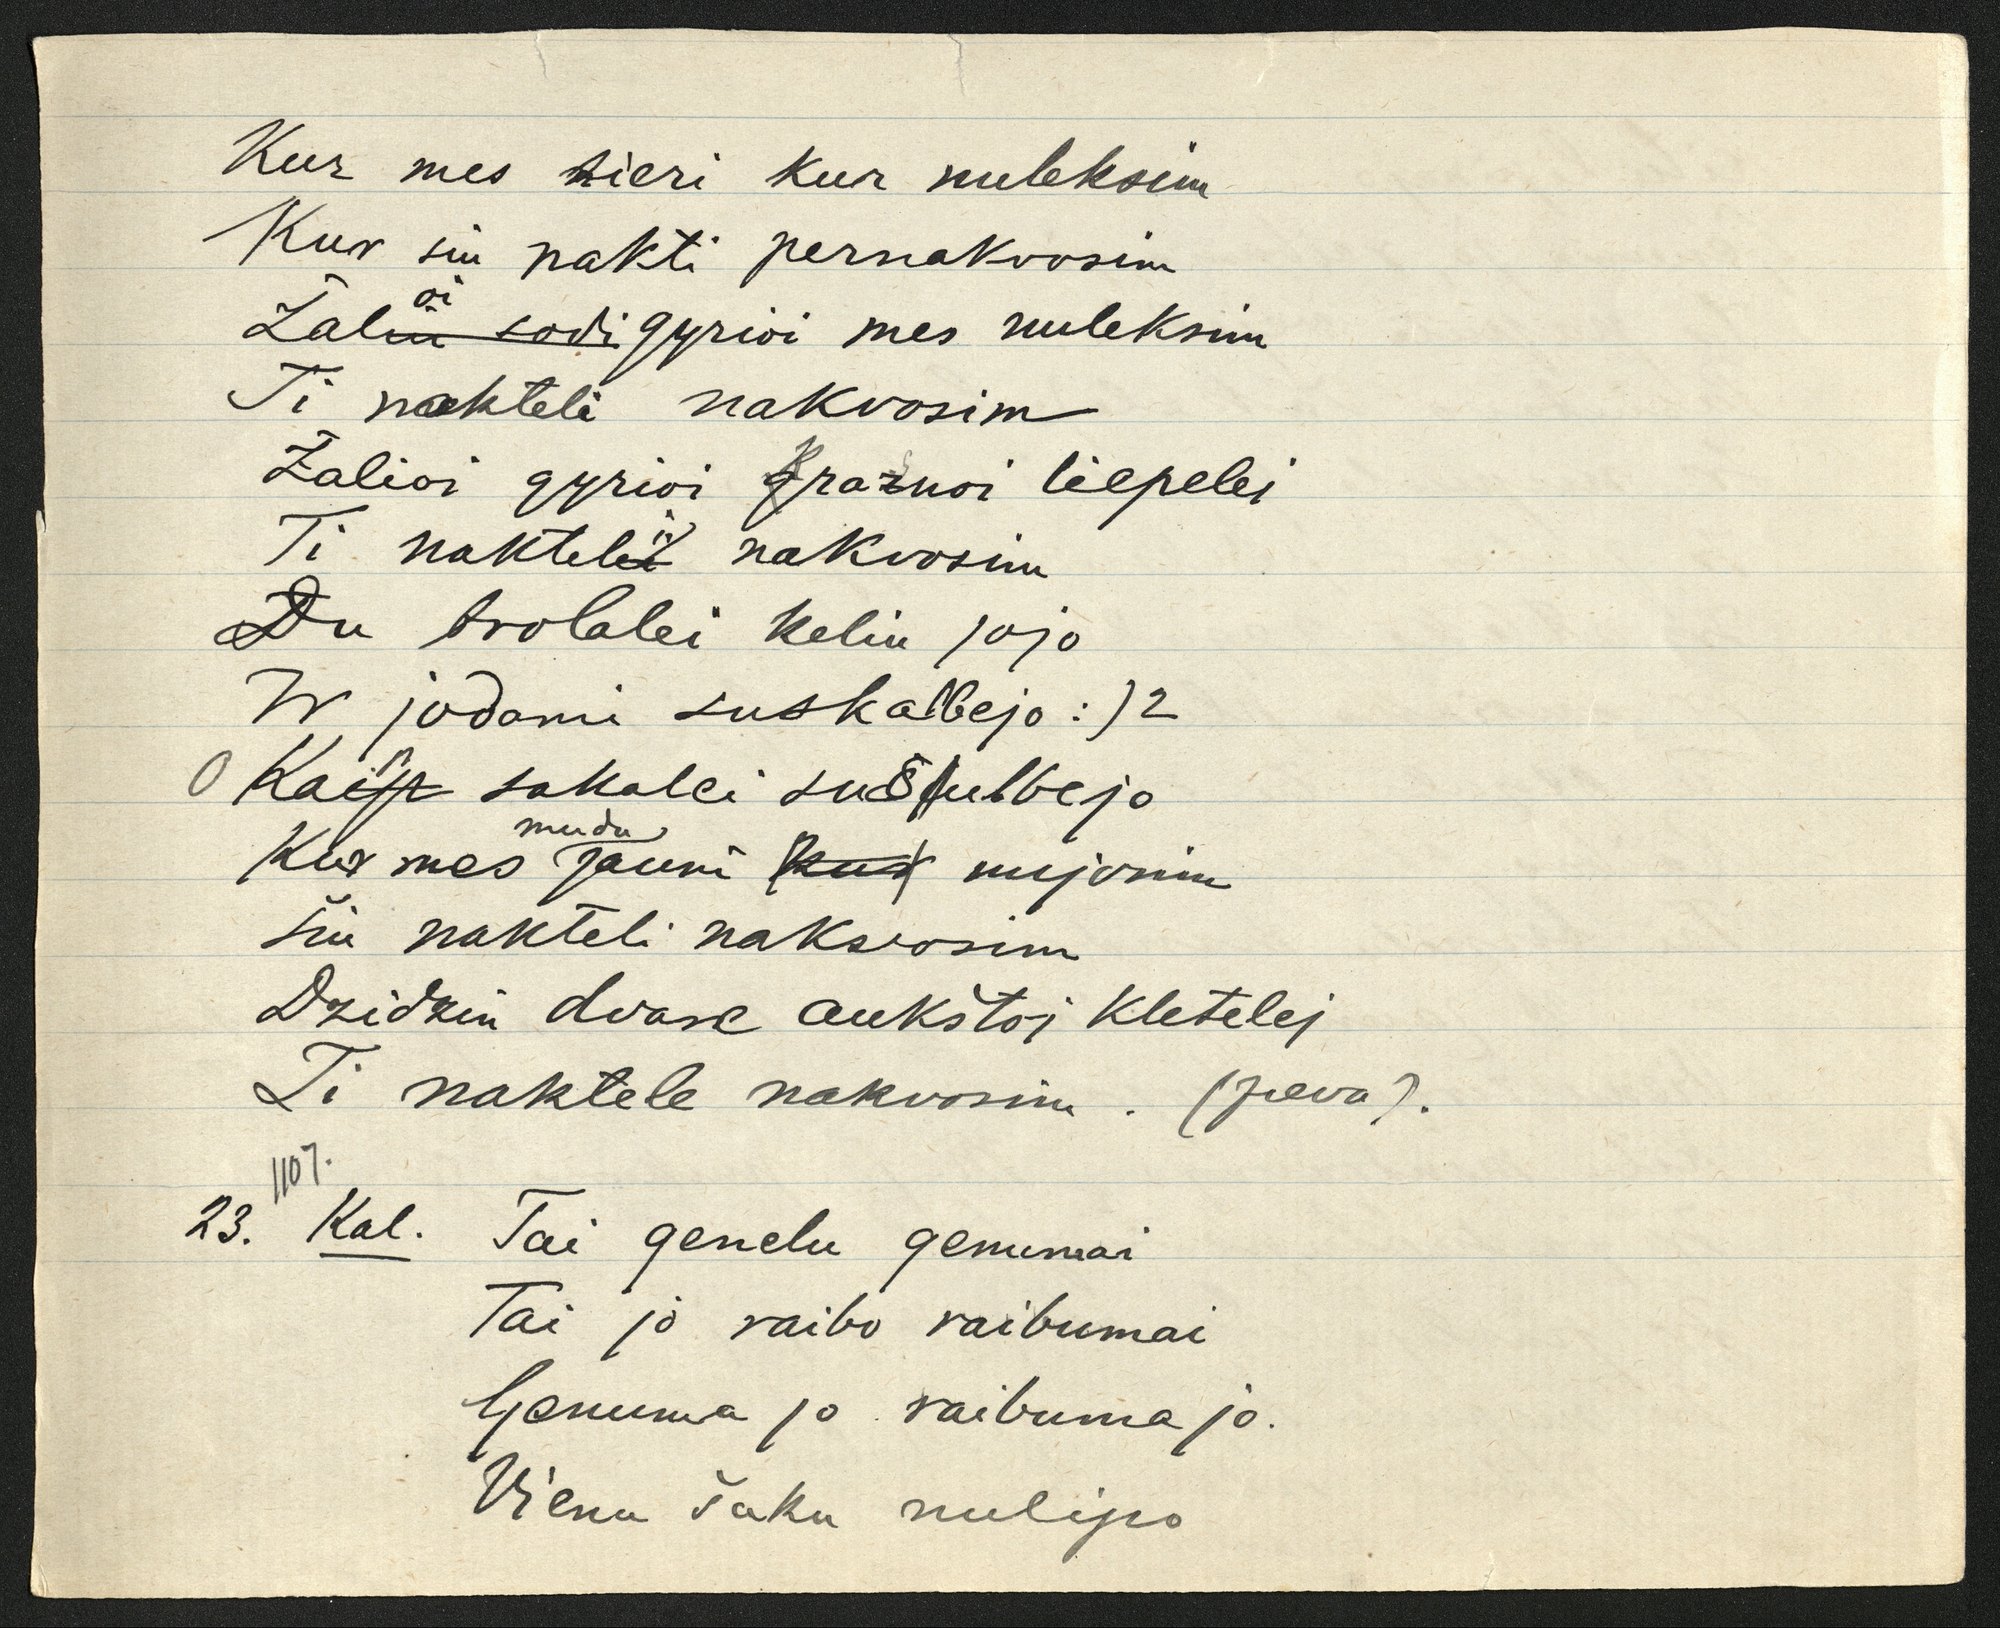 Kur mes sieri kur nuleksim
Kur šiu nakti pernakvosim
Žalioi gyrioi mes nuleksim
Ti nakteli nakvosim
Žalioi gyrioi gražnoi liepelei
Ti nakteli nakvosim
Du brolalei keliu jojo
Ir jodami suskalbejo :)2
O Kaip sakalei sučiulbejo
Kur mudu jauni nujosim
šiu nakteli nakvosim
Dzidziu dvare aukštoj kletelej
Ti naktele nakvosim. (peva).
1107.
23. Kal. Tai genelu genumai
Tai jo raibo raibumai
Genuma jo raibuma jo.
Vienu šaku nulipo